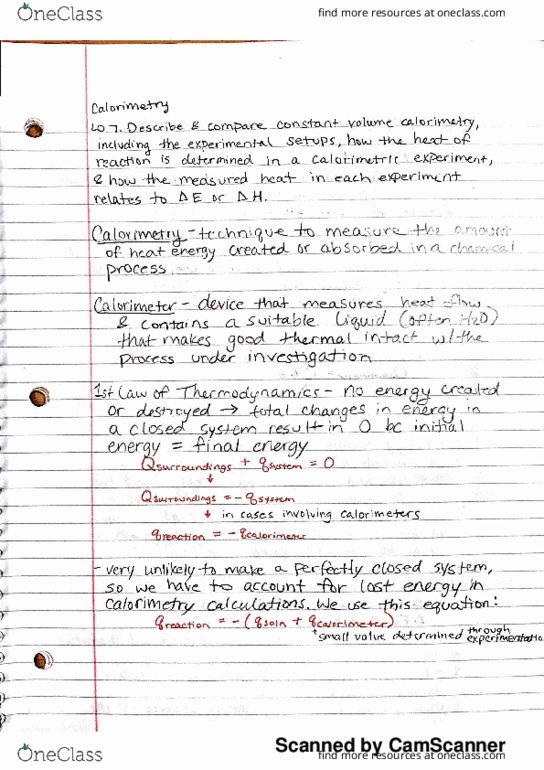 OneClass
find more resources at oneclass.com
Calorimetry
LO 7. Describe & compare constant volume calorimetry,
including the experimental setups, how the heat of
reaction is determined in a calorimetric experiment,
& how the measured heat in each experiment
relates to ΔE or ΔH.
Calorimetry - technique to measure the amount
of heat energy created or absorbed in a chemical
process
Calorimeter - device that measures heat flow
& contains a suitable liquid (often H2O)
that makes good thermal intact w/the
process under investigation
1st Law of Thermodynamics - no energy created
or destroyed → total changes in energy in
a closed system result in 0 bc initial
energy = final energy
qsurroundings + qsystem = 0
↓
qsurroundings = -qsystem
↓ in cases involving calorimeters
qreaction = -qcalorimeter
- very unlikely to make a perfectly closed system,
so we have to account for lost energy in
calorimetry calculations. We use this equation:
qreaction = -(qsoln + qcalorimeter)
↑small value determined through
experimentation
Scanned by CamScanner
OneClass
find more resources at oneclass.com